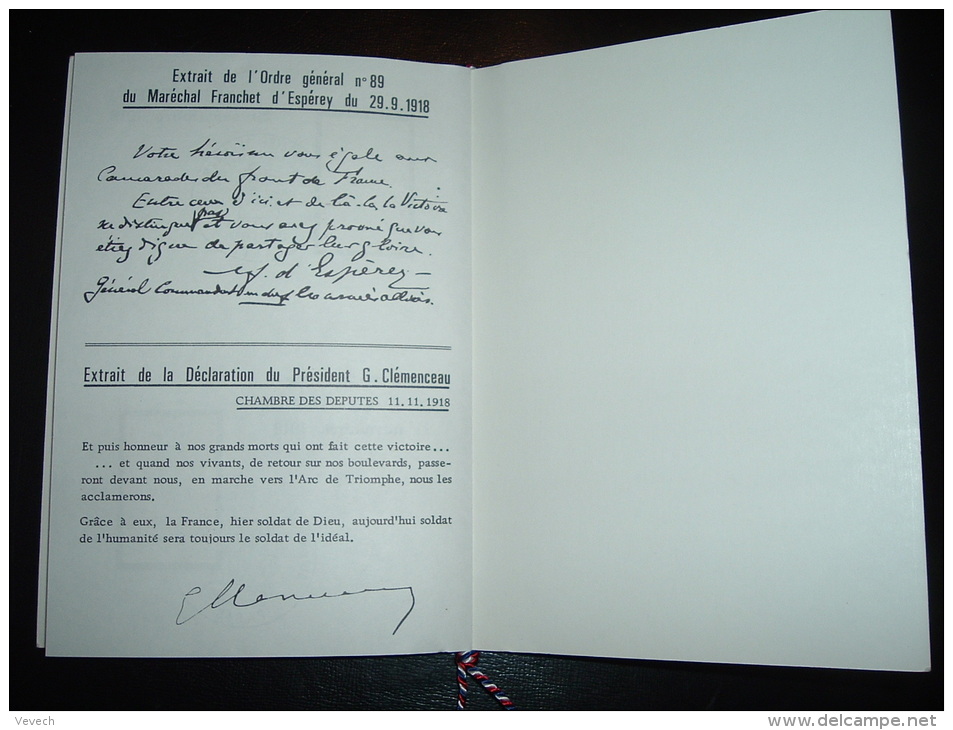 Extrait de l'Ordre général n° 89
du Maréchal Franchet d'Espérey du 29.9.1918
Votre héroïsme vous égale aux
Camarades du front de France.
Entre ceux d'ici et de là-bas la Victoire
ne distingue pas et vous avez prouvé que vous
étiez digne de partager leur gloire.
d'Espérey
Général Commandant en chef les armées alliées.
Extrait de la Déclaration du Président G. Clémenceau
CHAMBRE DES DEPUTES 11.11.1918
Et puis honneur à nos grands morts qui ont fait cette victoire...
... et quand nos vivants, de retour sur nos boulevards, passe-
ront devant nous, en marche vers l'Arc de Triomphe, nous les
acclamerons.
Grâce à eux, la France, hier soldat de Dieu, aujourd'hui soldat
de l'humanité sera toujours le soldat de l'idéal.
GClemenceau
Vevech
www.delcampe.net